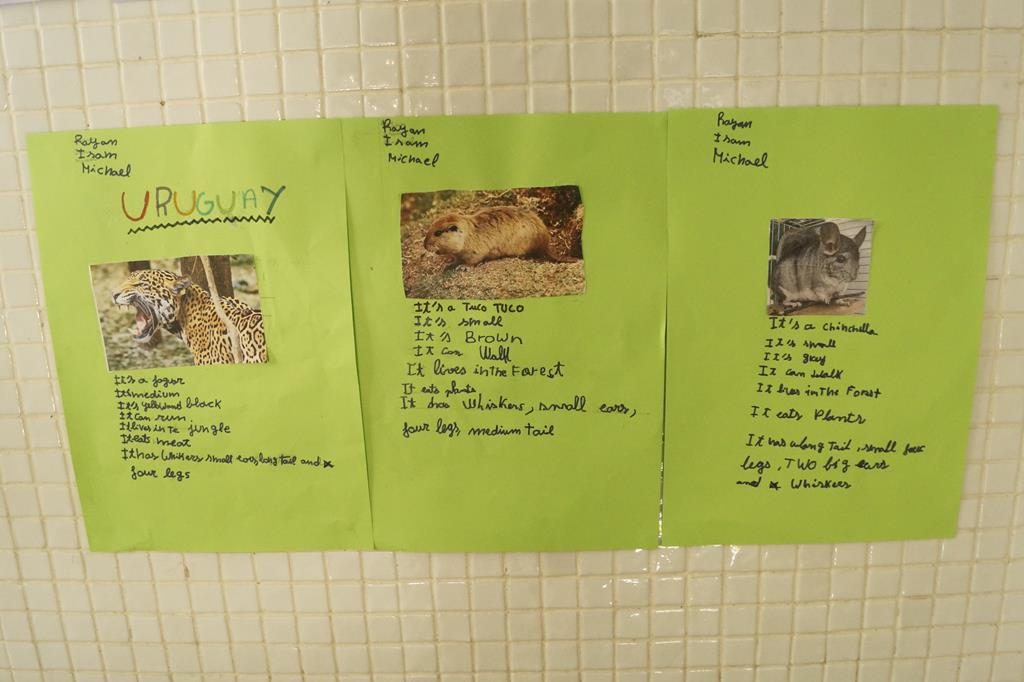 Rayan
Isam
Michael
URUGUAY
It's a jagur
It's medium
It's yellow and black
It can run.
It lives in te jungle
It eats meat
It has whikers small ears, long tail and
four legs
Rayan
Isam
Michael
It's a Tuco TUCO
It's small
It's Brown
It can Walk
It lives in the Forest
It eats plants
It has Whiskers, small ears,
four legs, medium tail
Rayan
Isam
Michael
It's a chinchilla
It's small
It's gray
It can walk
It lives in The Forest
It eats Plants
It has a long Tail, small four
legs, TWO big ears
and Whiskers